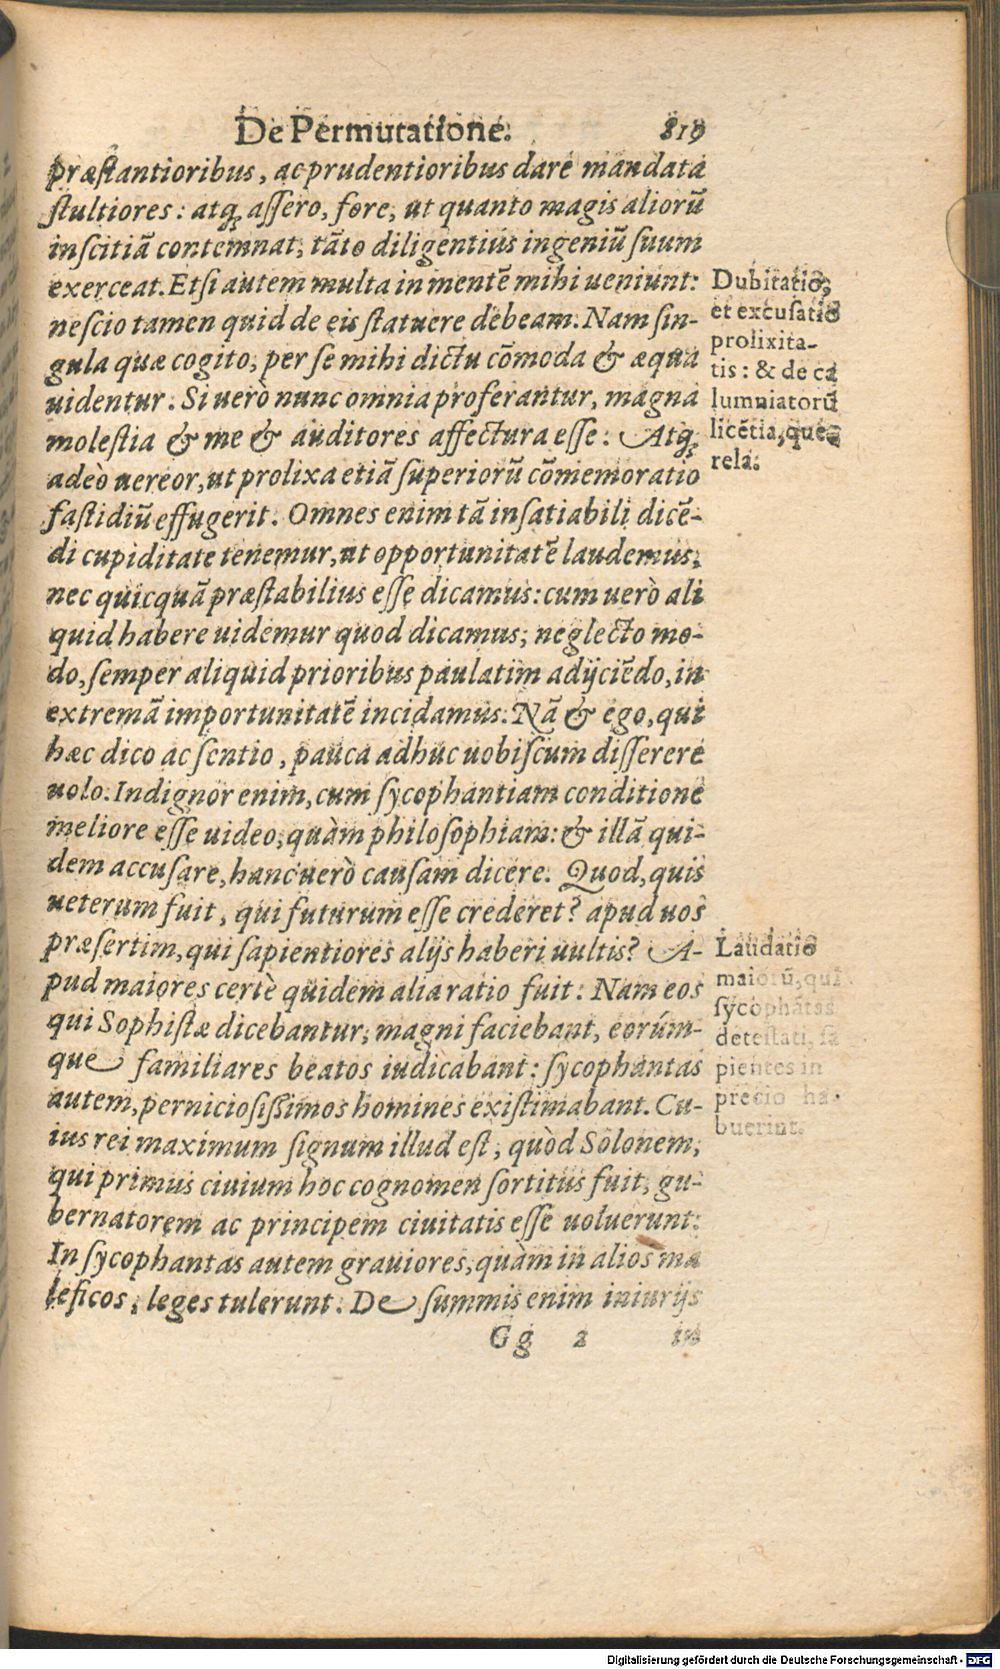 De Permutatione. 819
præstantioribus, ac prudentioribus dare mandata
stultiores: atq́; assero, fore, ut quanto magis aliorũ
inscitiã contemnat, tãto diligentius ingeniũ suum
exerceat. Etsi autem multa in mentẽ mihi ueniunt:
nescio tamen quid de eis statuere debeam. Nam sin-
gula quæ cogito, per se mihi dictu cõmoda & æqua
uidentur. Si uerò nunc omnia proferantur, magna
molestia & me & auditores affectura esse: Atq́;
adeò uereor, ut prolixa etiã superiorũ cõmemoratio
fastidiũ effugerit. Omnes enim tã insatiabili dicẽ-
di cupiditate tenemur, ut opportunitatẽ laudemus,
nec quicquã præstabilius esse dicamus: cum uerò ali
quid habere uidemur quod dicamus, neglecto mo-
do, semper aliquid prioribus paulatim adijciẽdo, in
extremã importunitatẽ incidamus. Nã & ego, qui
hæc dico ac sentio, pauca adhuc uobiscum disserere
uolo. Indignor enim, cum sycophantiam conditione
meliore esse uideo, quàm philosophiam: & illã qui-
dem accusare, hanc uerò causam dicere. Quod, quis
ueterum fuit, qui futurum esse crederet? apud uos
præsertim, qui sapientiores alijs haberi uultis? A-
pud maiores certè quidem alia ratio fuit: Nam eos
qui Sophistæ dicebantur, magni faciebant, eorúm-
que familiares beatos iudicabant: sycophantas
autem, perniciosissimos homines existimabant. Cu-
ius rei maximum signum illud est, quòd Solonem,
qui primus ciuium hoc cognomen sortitus fuit, gu-
bernatorem ac principem ciuitatis esse uoluerunt:
In sycophantas autem grauiores, quàm in alios ma
leficos, leges tulerunt. De summis enim iniurijs
Gg 2 in
Dubitatio,
et excusatio
prolixita-
tis: & de ca
lumniatorũ
licẽtia, que
rela.
Laudatio
maiorũ, qui
sycophãtas
detestati, sa
pientes in
precio ha-
buerint.
Digitalisierung gefördert durch die Deutsche Forschungsgemeinschaft - DFG